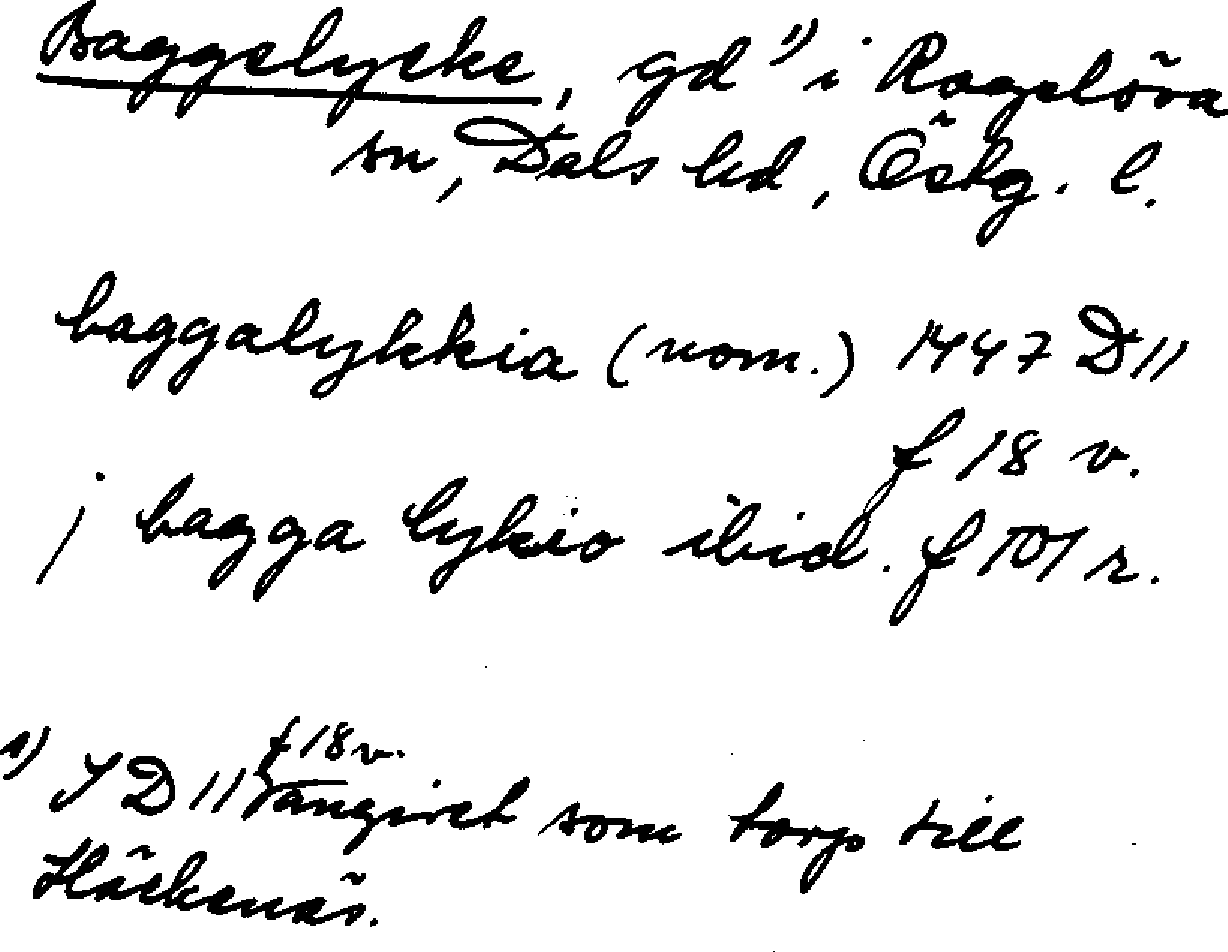 Baggelycke, gd 1) i Rogslösa
sn, Dals hd, Östg. l.
baggalykkia (nom.) 1447 D11
f 18 v.
j bagga lykio ibid. f 101 r.
1) I D 11 f 18 v. angivet som torp till
Häckenäs.